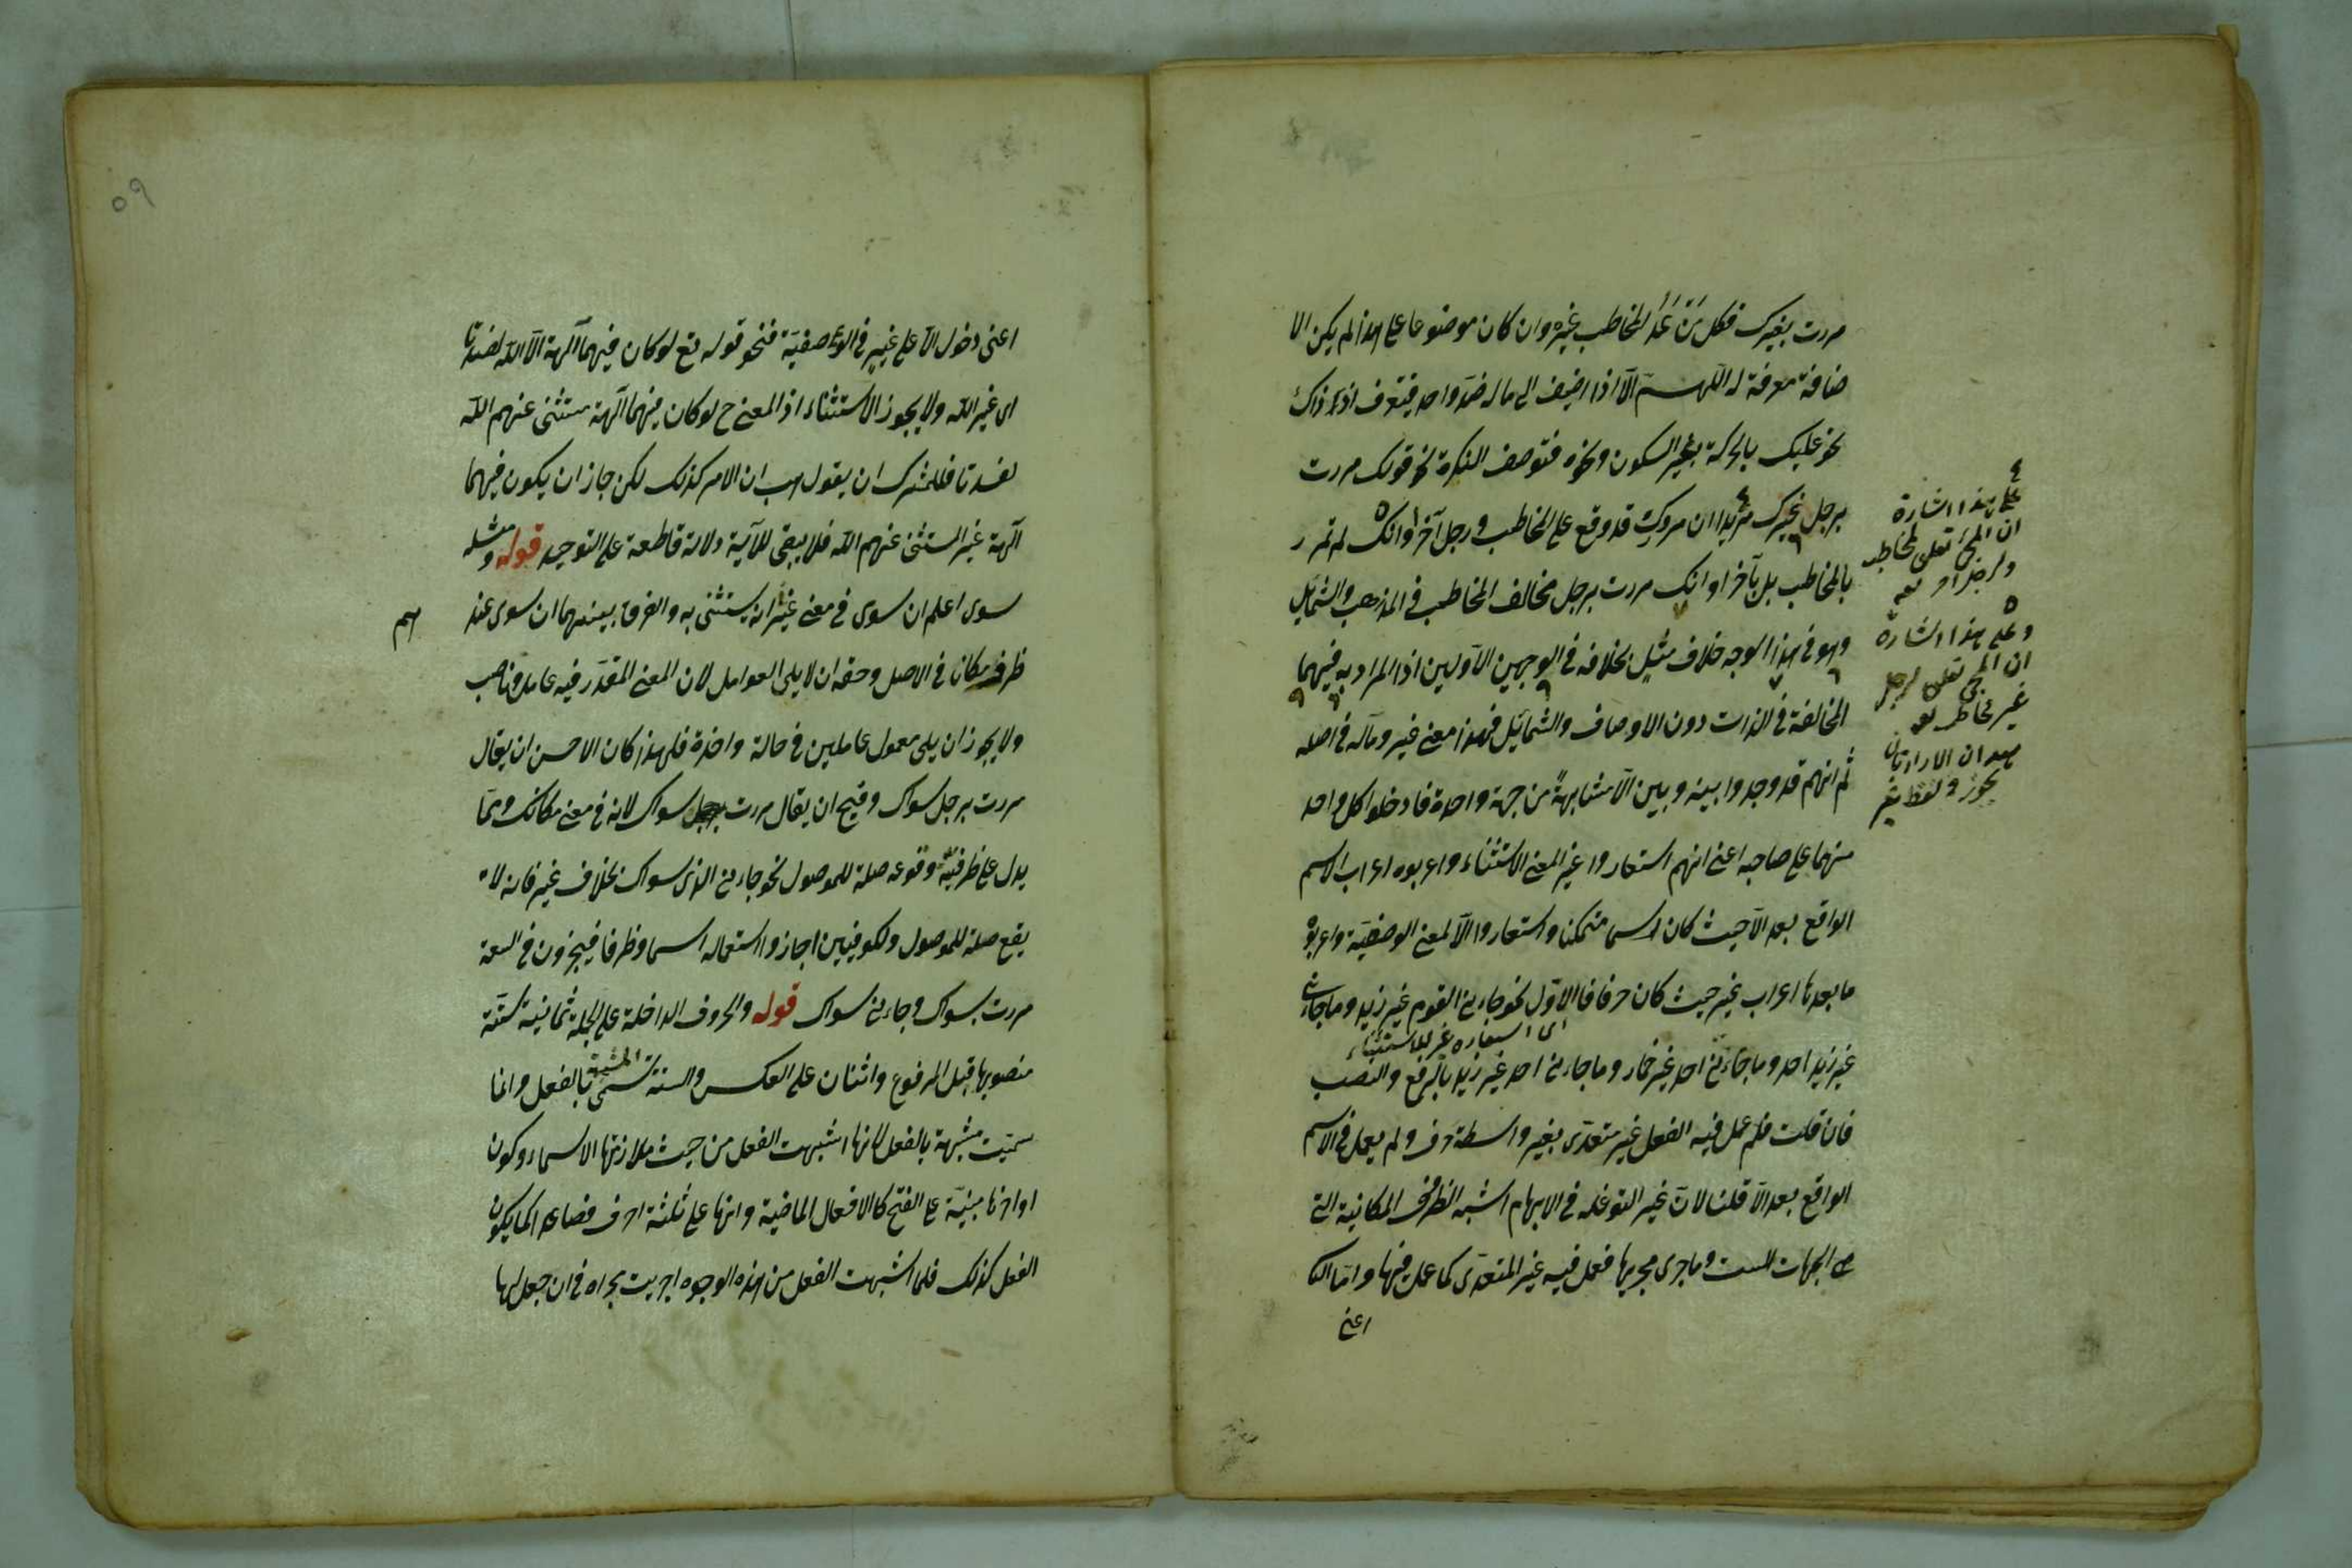 مررت بغيرك فكل من عدا المخاطب غيره وان كان موضوعا على هذا لم يكن الا
ضافة معرفة له اللهم الا اذا اضيف الى ماله ضد واحد فيتعرف اذ ذاك
نحو عليك بالحركة غير السكون ونحوه فتوصف النكرة نحو قولك مررت
برجل غيرك مريدا ان مرورك قد وقع على المخاطب ورجل آخر او انك لم تمر
بالمخاطب بل بآخر او انك مررت برجل مخالف المخاطب في المذهب والشمايل
وهو في هذا الوجه خلاف مثل بخلافه في الوجهين الاولين اذ المراد به فيهما
المخالفة في الذات دون الاوصاف والشمايل فهذا معنى غير وماله في اصله
ثم انهم قد وجدوا بينه وبين الا مشابهة من جهة واحدة فادخلوا كل واحد
منهما على صاحبه اعني انهم استعاروا غير المعنى الاستثناء واعربوه اعراب الاسم
الواقع بعد الا حيث كان اسما متمكنا واستعاروا الا لمعنى الوصفية واعربوا
ما بعدها اعراب غير حيث كان حرفا فالاول نحو جاءني القوم غير زيد وما جاءني
اى استعاره غير للاستثناء
غير زيد احد وما جاءني احد غير حمار وما جاءني احد غير زيد بالرفع والنصب
فان قلت فلم عمل فيه الفعل غير متعدى بغير واسطة حرف ولم يعمل في الاسم
الواقع بعد الا قلنا لان غير لتوغله في الابهام اشبه الظرف المكانية التي
هي الجهات الست وما جرى مجريها فعمل فيه غير المتعدى كما عمل فيها واما الثا
اعني
على هذا اشارة
ان المجئ تعلق لمخاطب
وعلى هذا اشارة
ان المجئ تعلق لرجل
غير مخاطب
بعد ان الارادتان
يجوز في لفظ غير
٥٩
اعني دخول الا على غير في الوصفية فنحو قوله تع لو كان فيهما آلهة الا الله لفسدتا
اى غير الله ولا يجوز الاستثناء اذ المعنى ح لو كان فيهما آلهة مستثنى عنهم الله
لفسدتا فللمشرك ان يقول هب ان الامر كذلك لكن جاز ان يكون فيهما
آلهة غير المستثنى عنهم الله فلا يبقى للآية دلالة قاطعة على التوحيد قوله ومثله
سوى اعلم ان سوى في معنى غير انه يستثنى به والفرق بينهما ان سوى عند
هم
ظرف مكان في الاصل وحقه ان لا يلى العوامل لان المعنى المقدر فيه عامل وناصب
ولا يجوز ان يلى معمول عاملين في حالة واحدة فلهذا كان الاحسن ان يقال
مررت برجل سواك وقبيح ان يقال مررت سواك لانه في معنى مكانك ومما
يدل على ظرفيته وقوعه صلة للموصول نحو جاءني الذى سواك بخلاف غير فانه لا
يقع صلة للموصول والكوفيين اجازوا استعماله اسما وظرفا فيجرون في السعة
مررت بسواك وجاءني سواك قوله والحروف الداخلة على الجملة ثمانية ستة
منصوبها قبل المرفوع واثنان على العكس والستة تسمى المشبهة بالفعل وانما
سميت مشبهة بالفعل لانها اشبهت الفعل من حيث ملازمتها الاسماء وكون
اواخرها مبنية على الفتح كالافعال الماضية وانها على ثلثة احرف فصاعدا كما يكون
الفعل كذلك فلما اشبهت الفعل من هذه الوجوه اجريت مجراه في ان جعل لها